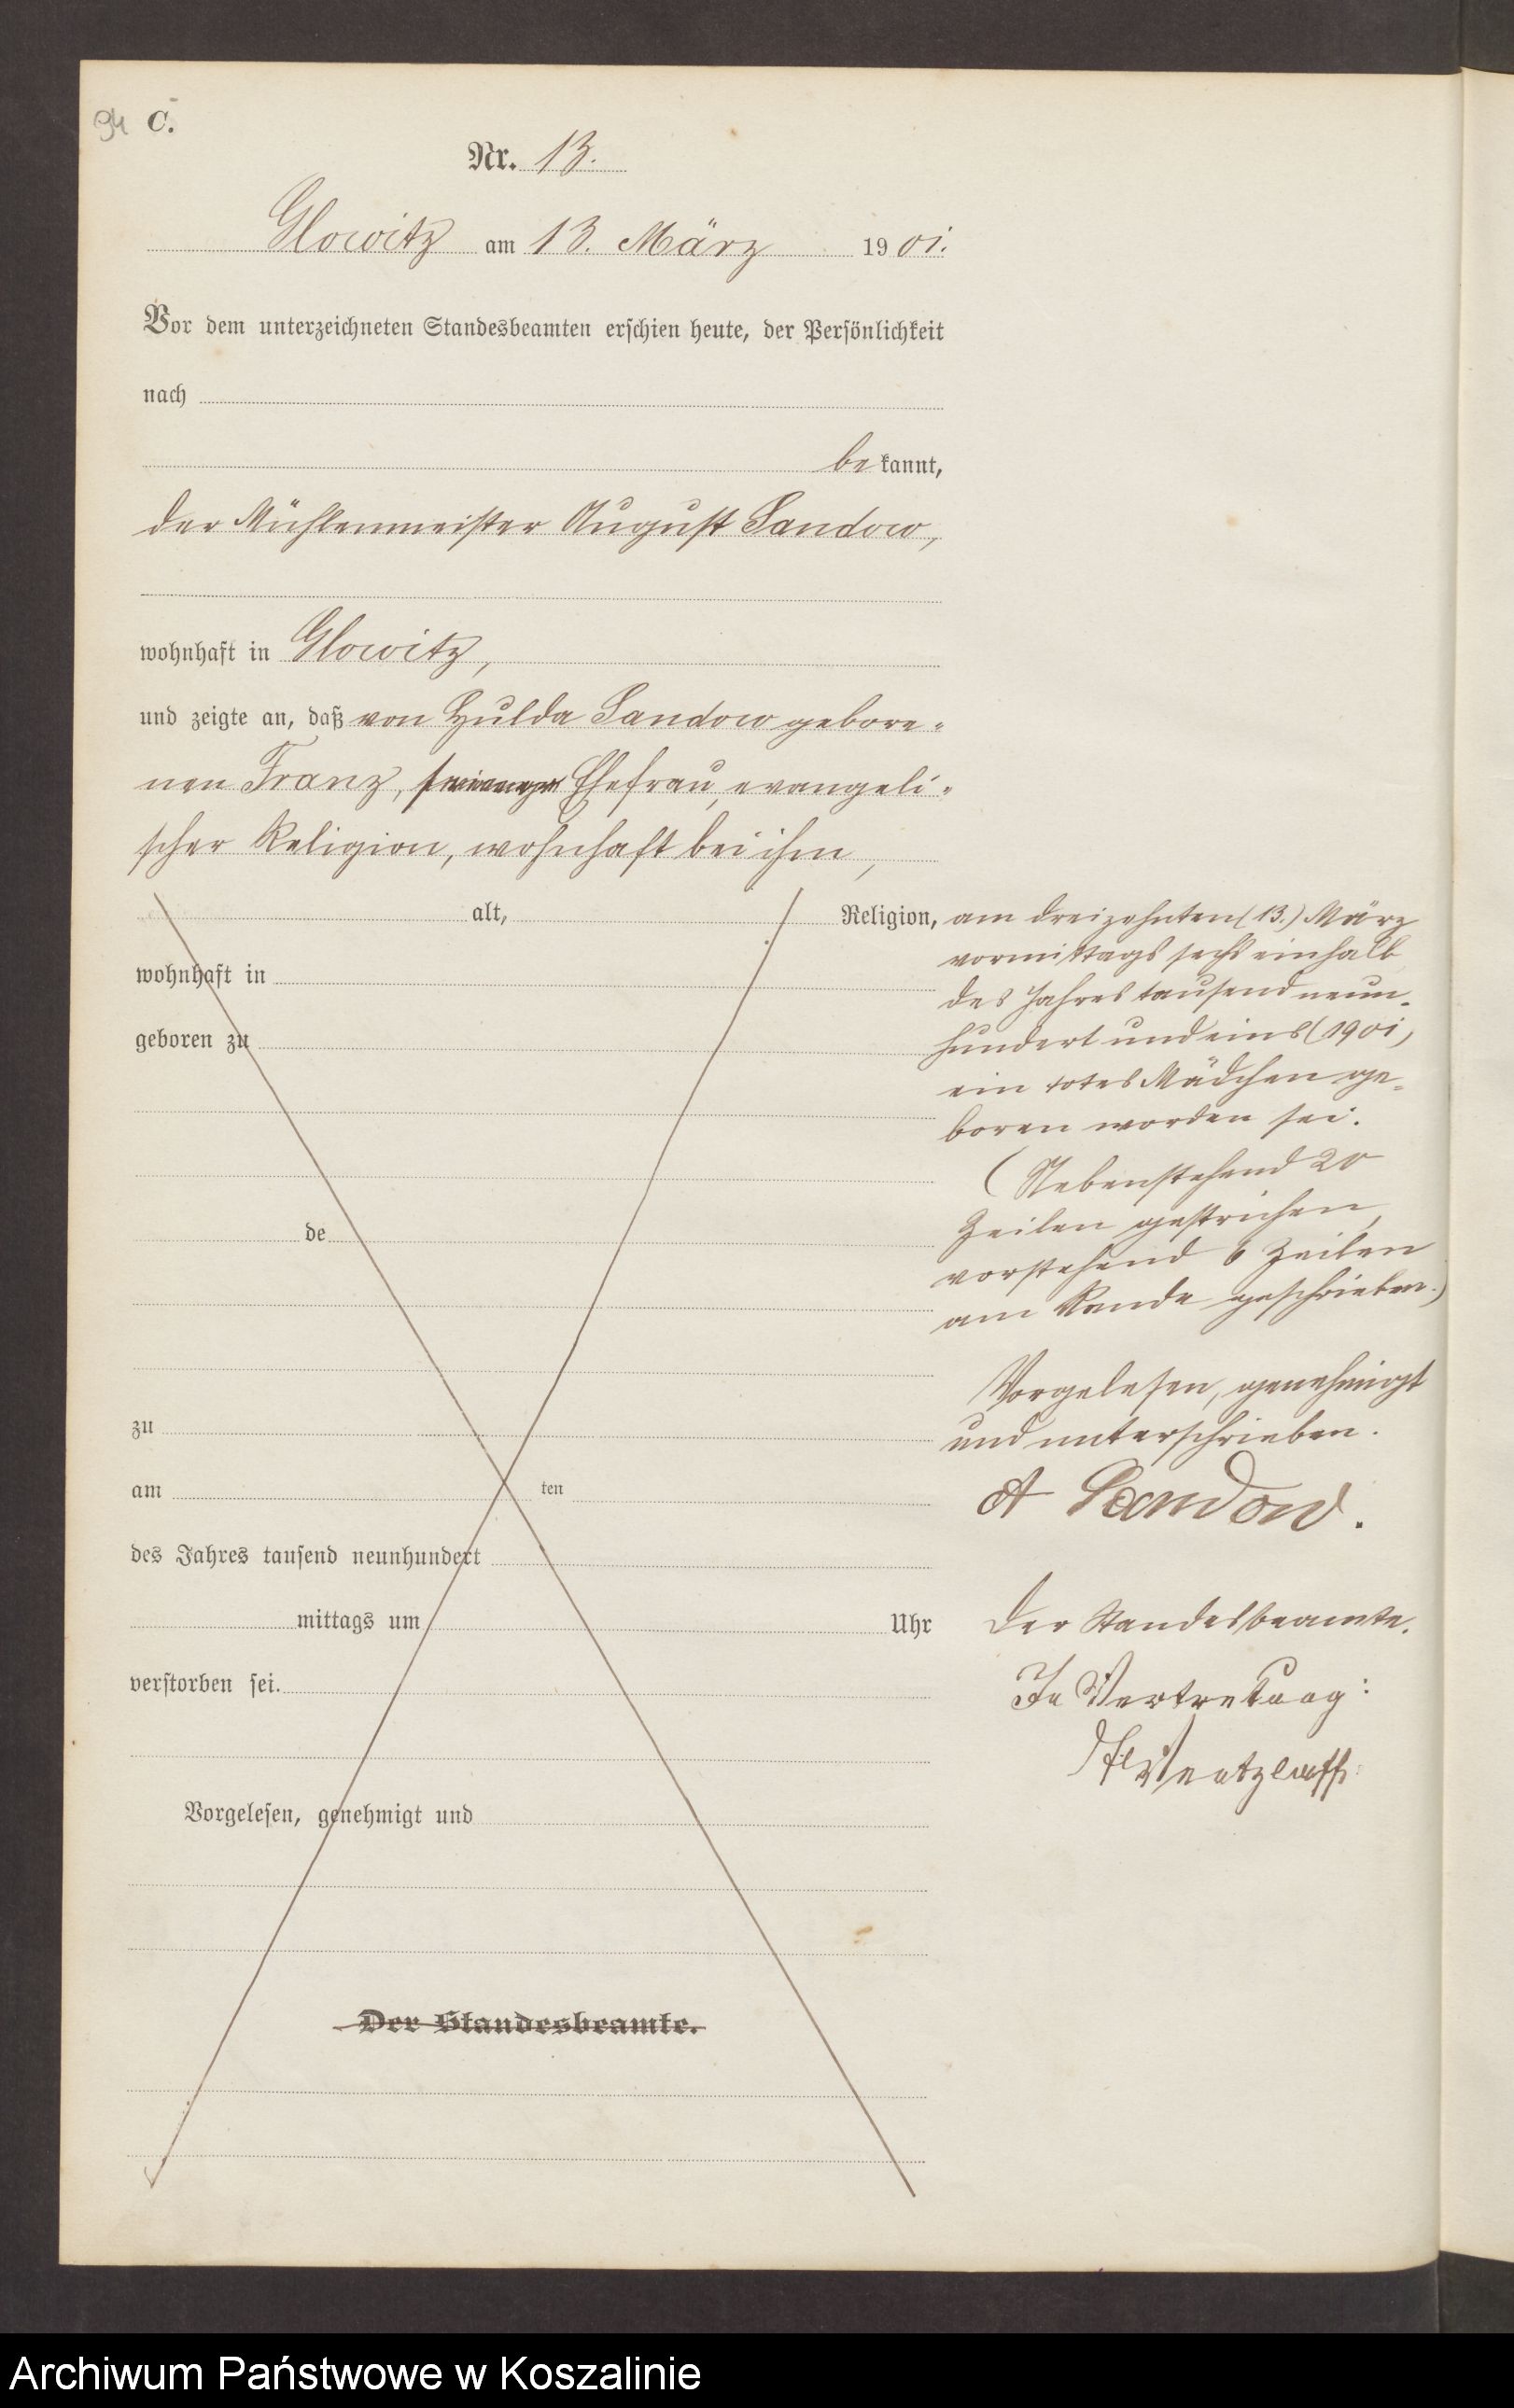 94 C.
Nr. 13.
Glowitz am 13. März 1901.
Vor dem unterzeichneten Standesbeamten erschien heute, der Persönlichkeit
nach
bekannt,
der Mühlenmeister August Sandow,
wohnhaft in Glowitz,
und zeigte an, daß von Hulda Sandow gebore-
nen Franz, seiner Ehefrau, evangeli-
scher Religion, wohnhaft bei ihm,
alt, Religion,
wohnhaft in
geboren zu
de
zu
am ten
des Jahres tausend neunhundert
mittags um Uhr
verstorben sei.
Vorgelesen, genehmigt und
Der Standesbeamte.
am dreizehnten (13.) März
vormittags sechseinhalb
des Jahres tausend neun-
hundert und eins (1901)
ein totes Mädchen ge-
boren worden sei.
(Nebenstehend 20
Zeilen gestrichen,
vorstehend 6 Zeilen
am Rande geschrieben.)
Vorgelesen, genehmigt
und unterschrieben.
A Sandow.
Der Standesbeamte.
In Vertretung:
Wentzlaff.
Archiwum Państwowe w Koszalinie